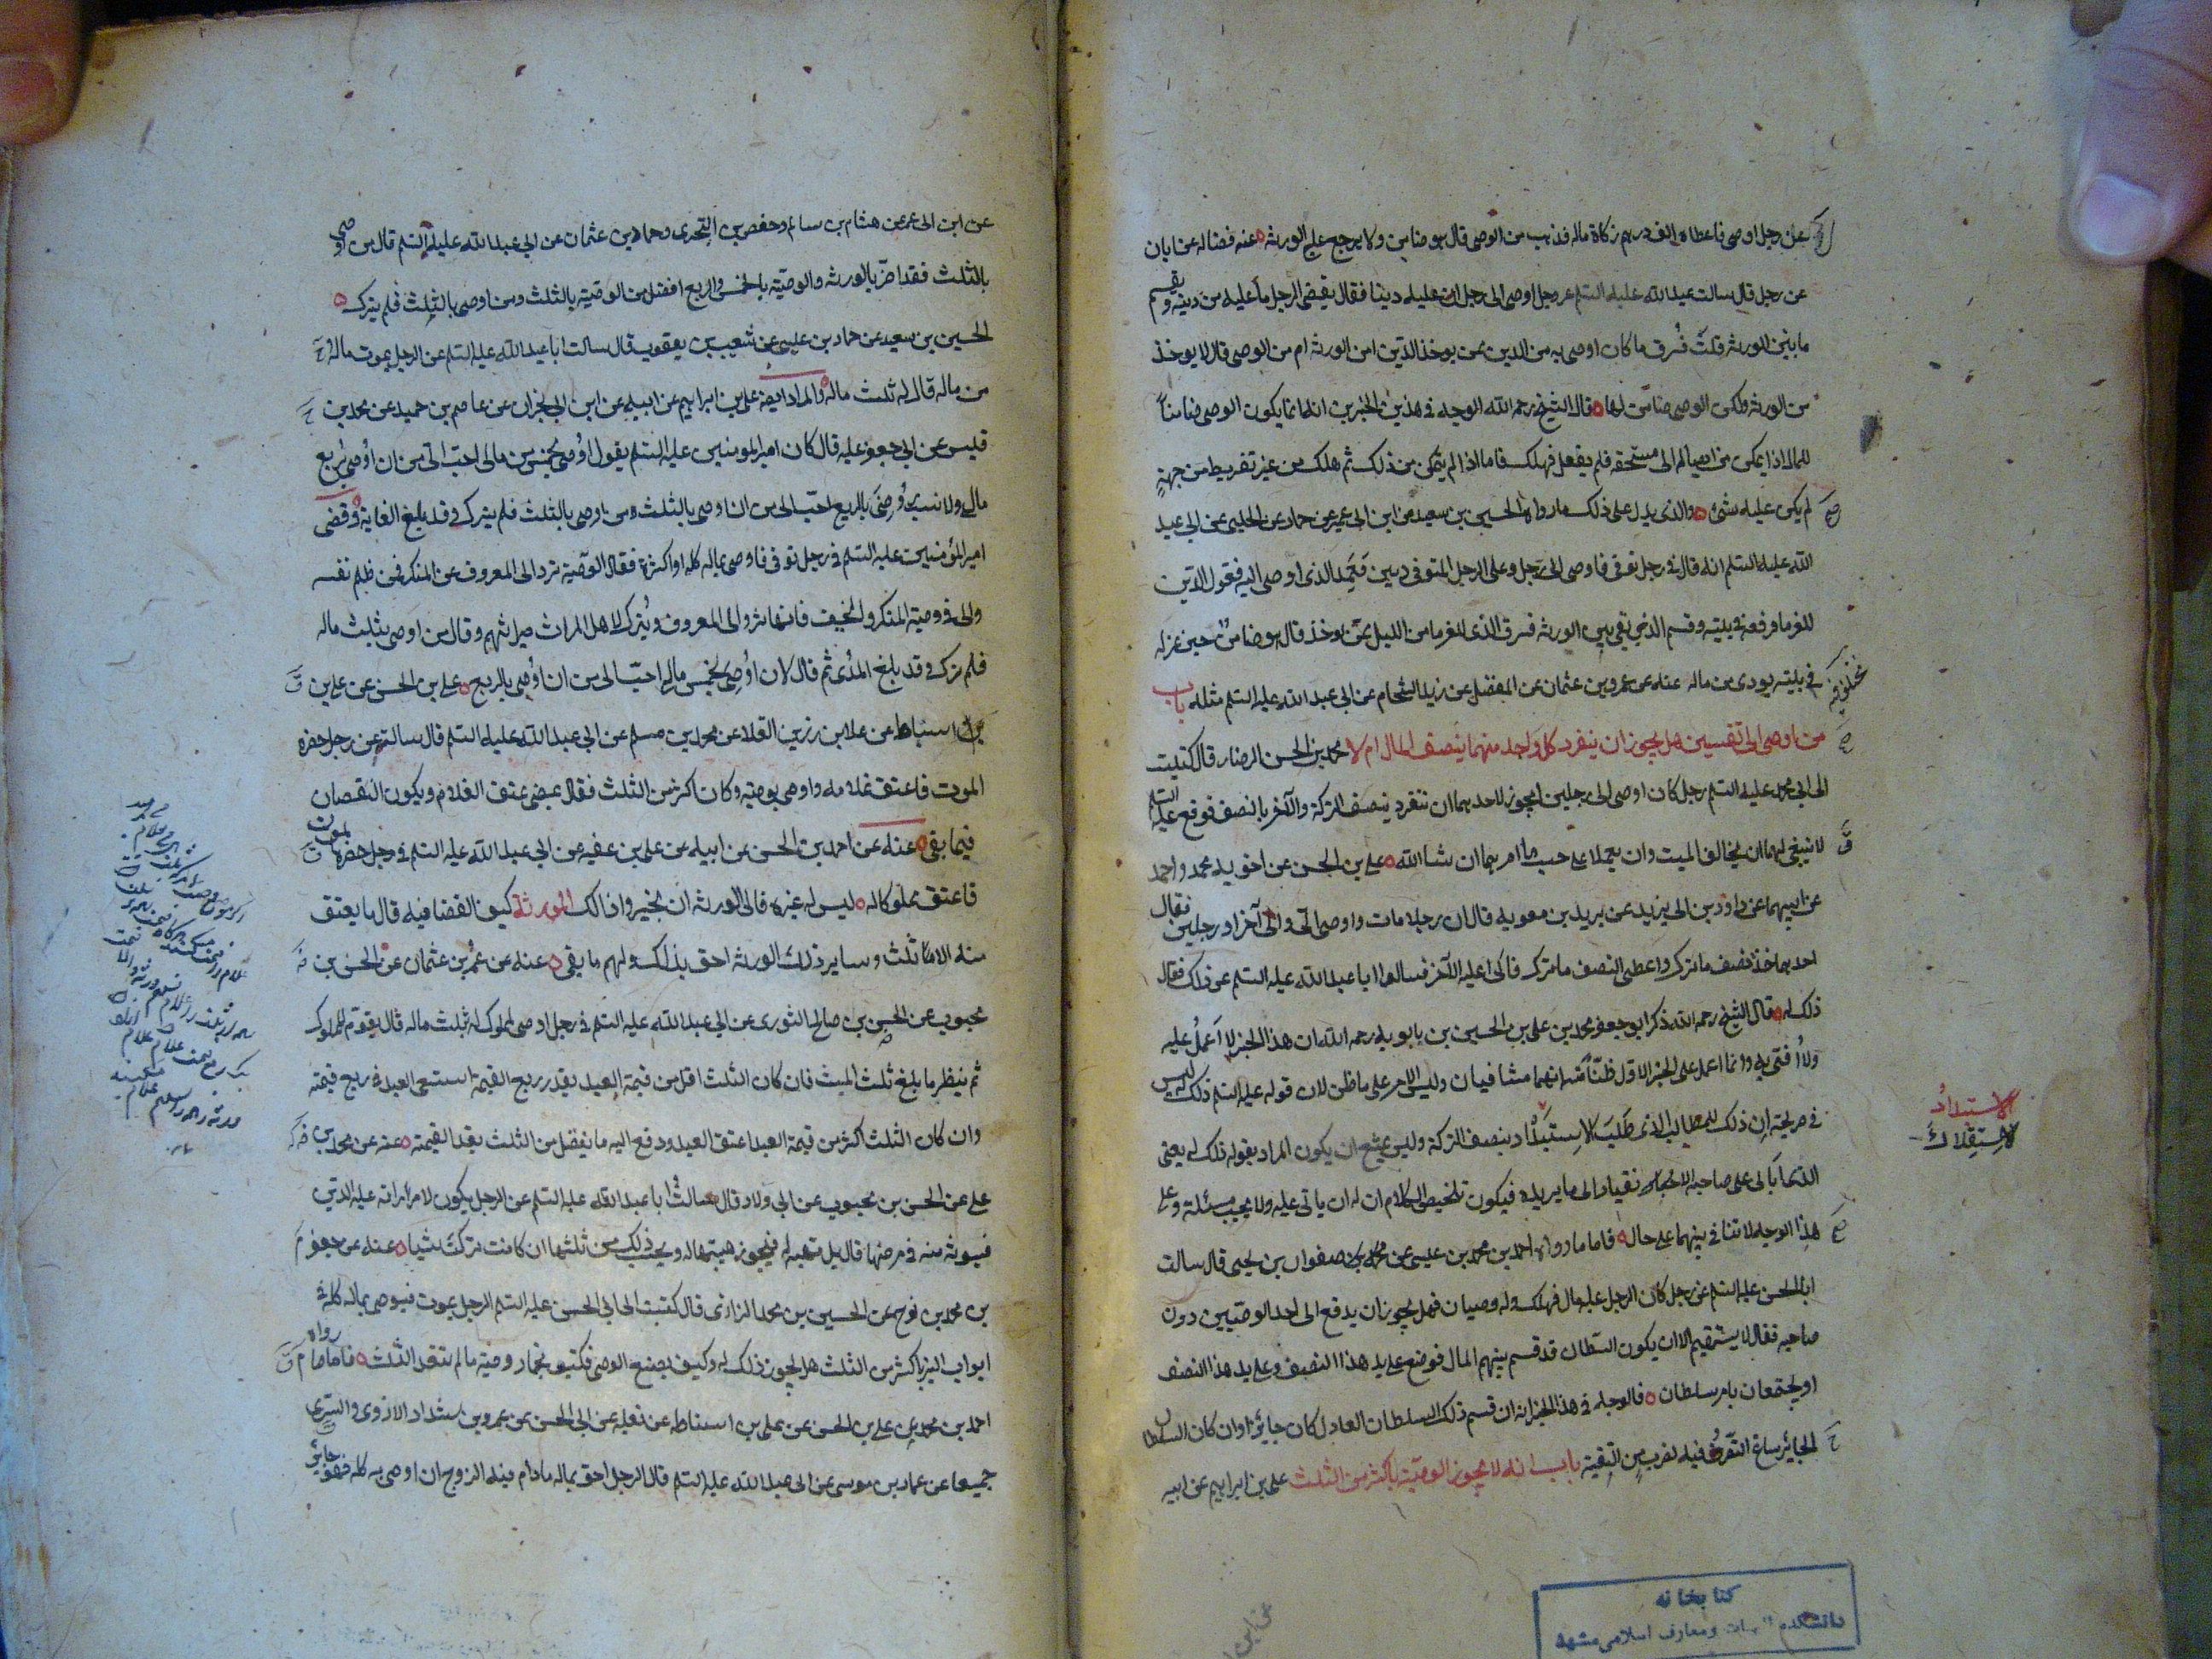 عن رجل اوصى فاعطاه الف درهم زكاة ماله فذهب من الوصى قال هو ضامن ولا يرجع على الورثه عنه فضاله عن ابان
عن رجل قال سالت عبد الله عليه السلم عن رجل اوصى الى رجل ان عليه دينا فقال يقضى الرجل ما عليه من دينه ويقسم
ما بقى بين الورثه قلت فسرق ما كان اوصى به من الدين ممن يوخذ الدين امن الورثه ام من الوصى قال لا يوخذ
من الورثه ولكن الوصى ضامن لها قال الشيخ رحمه الله الوجه فى هذين الخبرين انه انما يكون الوصى ضامناً
للمال اذا تمكن من ايصاله الى مستحقه فلم يفعل فهلك فاما اذا لم يتمكن من ذلك ثم هلك من غير تفريط من جهةٍ
لم يكن عليه شئ والذى يدل على ذلك ما رواه الحسين بن سعيد عن ابن ابى عمير عن حماد عن الحلبى عن ابى عبد
الله عليه السلم انه قال فى رجل توفى فاوصى الى رجل وعلى الرجل المتوفى دين فعمد الذى اوصى اليه فعزل الدين
للغرما فرفعه فى بيته وقسم الذى بقى بين الورثه فسرق الذى للغرما من الليل ممن يوخذ قال هو ضامن حين عزله
فى بيته يودى من ماله عنه عن عمرو بن عثمان عن المفضل عن زيد الشحام عن ابى عبد الله عليه السلم مثله باب
من اوصى الى نفسين هل يجوز ان ينفرد كل واحد منهما بنصف المال ام لا محمد بن الحسن الصفار قال كتبت
الى ابى محمد عليه السلم رجل كان اوصى الى رجلين ايجوز لاحدهما ان ينفرد بنصف التركة والآخر بالنصف فوقع عليه السلم
لا ينبغى لهما ان يخالفا الميت وان يعملا على حسب ما امرهما ان شا الله على بن الحسن عن اخويه محمد واحمد
عن ابيهما عن داود بن ابى يزيد عن بريد بن معويه قال ان رجلا مات واوصى الى والى آخر او رجلين فقال
احدهما خذ نصف ما ترك واعطنى النصف مما ترك فابى عليه الآخر فسالوا ابا عبد الله عليه السلم عن ذلك فقال
ذلك له قال الشيخ رحمه الله ذكر ابو جعفر محمد بن على بن الحسين بن بابويه رحمه الله ان هذا الخبر لا اعمل عليه
ولا افتى به وانما اعمل على الخبر الاول ظنّاً منه انهما متنافيان وليس الامر على ما ظن لان قوله عليه السلم ذلك له ليس
فى صريحه ان ذلك للمطالب الذى طلب الاستبداد بنصف التركة وليس يمتنع ان يكون المراد بقوله ذلك له يعنى
الذى ابى على صاحبه الانقياد الى ما يريده فيكون تلخيص الكلام ان له ان يابى عليه ولا يجيب مسئلة وعلى
هذا الوجه لا تنافى بينهما على حال فاما ما رواه احمد بن محمد بن عيسى عن محمد بن صفوان بن يحيى قال سالت
ابا الحسن عليه السلم عن رجل كان لرجل عليه مال فهلك وله وصيان فهل يجوز ان يدفع الى احد الوصيين دون
صاحبه فقال لا يستقيم الا ان يكون السلطان قد قسم بينهم المال فوضع على يد هذا النصف وعلى يد هذا النصف
او يجتمعان بامر سلطان فالوجه فى هذا الخبر انه ان قسم ذلك السلطان العادل كان جايزا وان كان السلطان
الجائر ساغ التصرف فيه لضرب من التقية باب انه لا يجوز الوصية باكثر من الثلث على بن ابراهيم عن ابيه
الاستبداد
الاستقلال
كتابخانه
دانشكده الهيات ومعارف اسلامى مشهد
عن ابن
عن ابن ابى عمير عن هشام بن سالم وحفص بن البخترى وحماد بن عثمان عن ابى عبد الله عليه السلم قال من اوصى
بالثلث فقد اضرّ بالورثه والوصيّة بالخمس والربع افضل من الوصية بالثلث ومن اوصى بالثلث فلم يترك
الحسين بن سعيد عن حماد بن عيسى عن شعيب بن يعقوب قال سالت ابا عبد الله عليه السلم عن الرجل يموت ماله
من ماله قال له ثلث ماله وللمراة ايضا على بن ابراهيم عن ابيه عن ابن ابى نجران عن عاصم بن حميد عن محمد بن
قيس عن ابى جعفر عليه قال كان امير المومنين عليه السلم يقول لاوصى بخمس من مالى احبّ الىّ من ان اوصى بربع
مالى ولان اوصى بالربع احبّ الى من ان اوصى بالثلث ومن اوصى بالثلث فلم يترك وقد بلغ الغاية وقضى
امير المؤمنين عليه السلم فى رجل توفى فاوصى بماله كله او اكثره فقال الوصية ترد الى المعروف عن المنكر فمن ظلم نفسه
واتى فى وصيته المنكر والحيف فانها ترد الى المعروف ويترك لاهل الميراث ميراثهم وقال من اوصى بثلث ماله
فلم يترك وقد بلغ المدى ثم قال لان اوصى بخمس مالى احبّ الى من ان اوصى بالربع على بن الحسن عن على بن
اسباط عن علا بن رزين القلا عن محمد بن مسلم عن ابى عبد الله عليه السلم قال سالته عن رجل حضره
الموت فاعتق غلامه واوصى بوصيه وكان اكثر من الثلث فقال يمضى عتق الغلام ويكون النقصان
فيما بقى عنه عن احمد بن الحسن عن ابيه عن على بن عقبه عن ابى عبد الله عليه السلم فى رجل حضره الموت
فاعتق مملوكا له ليس له غيره فابى الورثه ان يجيزوا ذلك كيف القضا فيه قال ما يعتق
منه الا ثلث وساير ذلك الورثه احق بذلك ولهم ما بقى عنه عن عمرو بن عثمان عن الحسن بن
محبوب عن الحسن بن صالح الثورى عن ابى عبد الله عليه السلم فى رجل اوصى لمملوك له بثلث ماله قال يقوّم المملوك
ثم ينظر ما بلغ ثلث الميت فان كان الثلث اقل من قيمة العبد بقدر ربع القيمة استسعى العبد فى ربع قيمته
وان كان الثلث اكثر من قيمة العبد اعتق العبد ودفع اليه ما يفضل من الثلث بعد القيمة عنه عن محمد بن
على عن الحسن بن محبوب عن ابى ولاد قال سالت ابا عبد الله عليه السلم عن الرجل يكون لامراته عليه الدين
فتبرئه منه فى مرضها قال بل تهبه له فيجوز هبتها له ويحسب ذلك من ثلثها ان كانت تركت شيا عنه عن جعفر
بن محمد بن نوح عن الحسين بن محمد الرازى قال كتبت الى ابى الحسن عليه السلم الرجل يموت فيوصى بماله كله فى
ابواب البر باكثر من الثلث هل يجوز ذلك له وكيف يصنع الوصى فكتب تجاز وصيته ما لم يتعد الثلث فاما ما رواه
احمد بن محمد عن على بن الحسن عن على بن اسباط عن ثعلبه عن ابى الحسن عن عمرو بن شداد الازدى والسرى
جميعا عن عمار بن موسى عن ابى عبد الله عليه السلم قال الرجل احق بماله مادام فيه الروح ان اوصى به كله فهو جايز